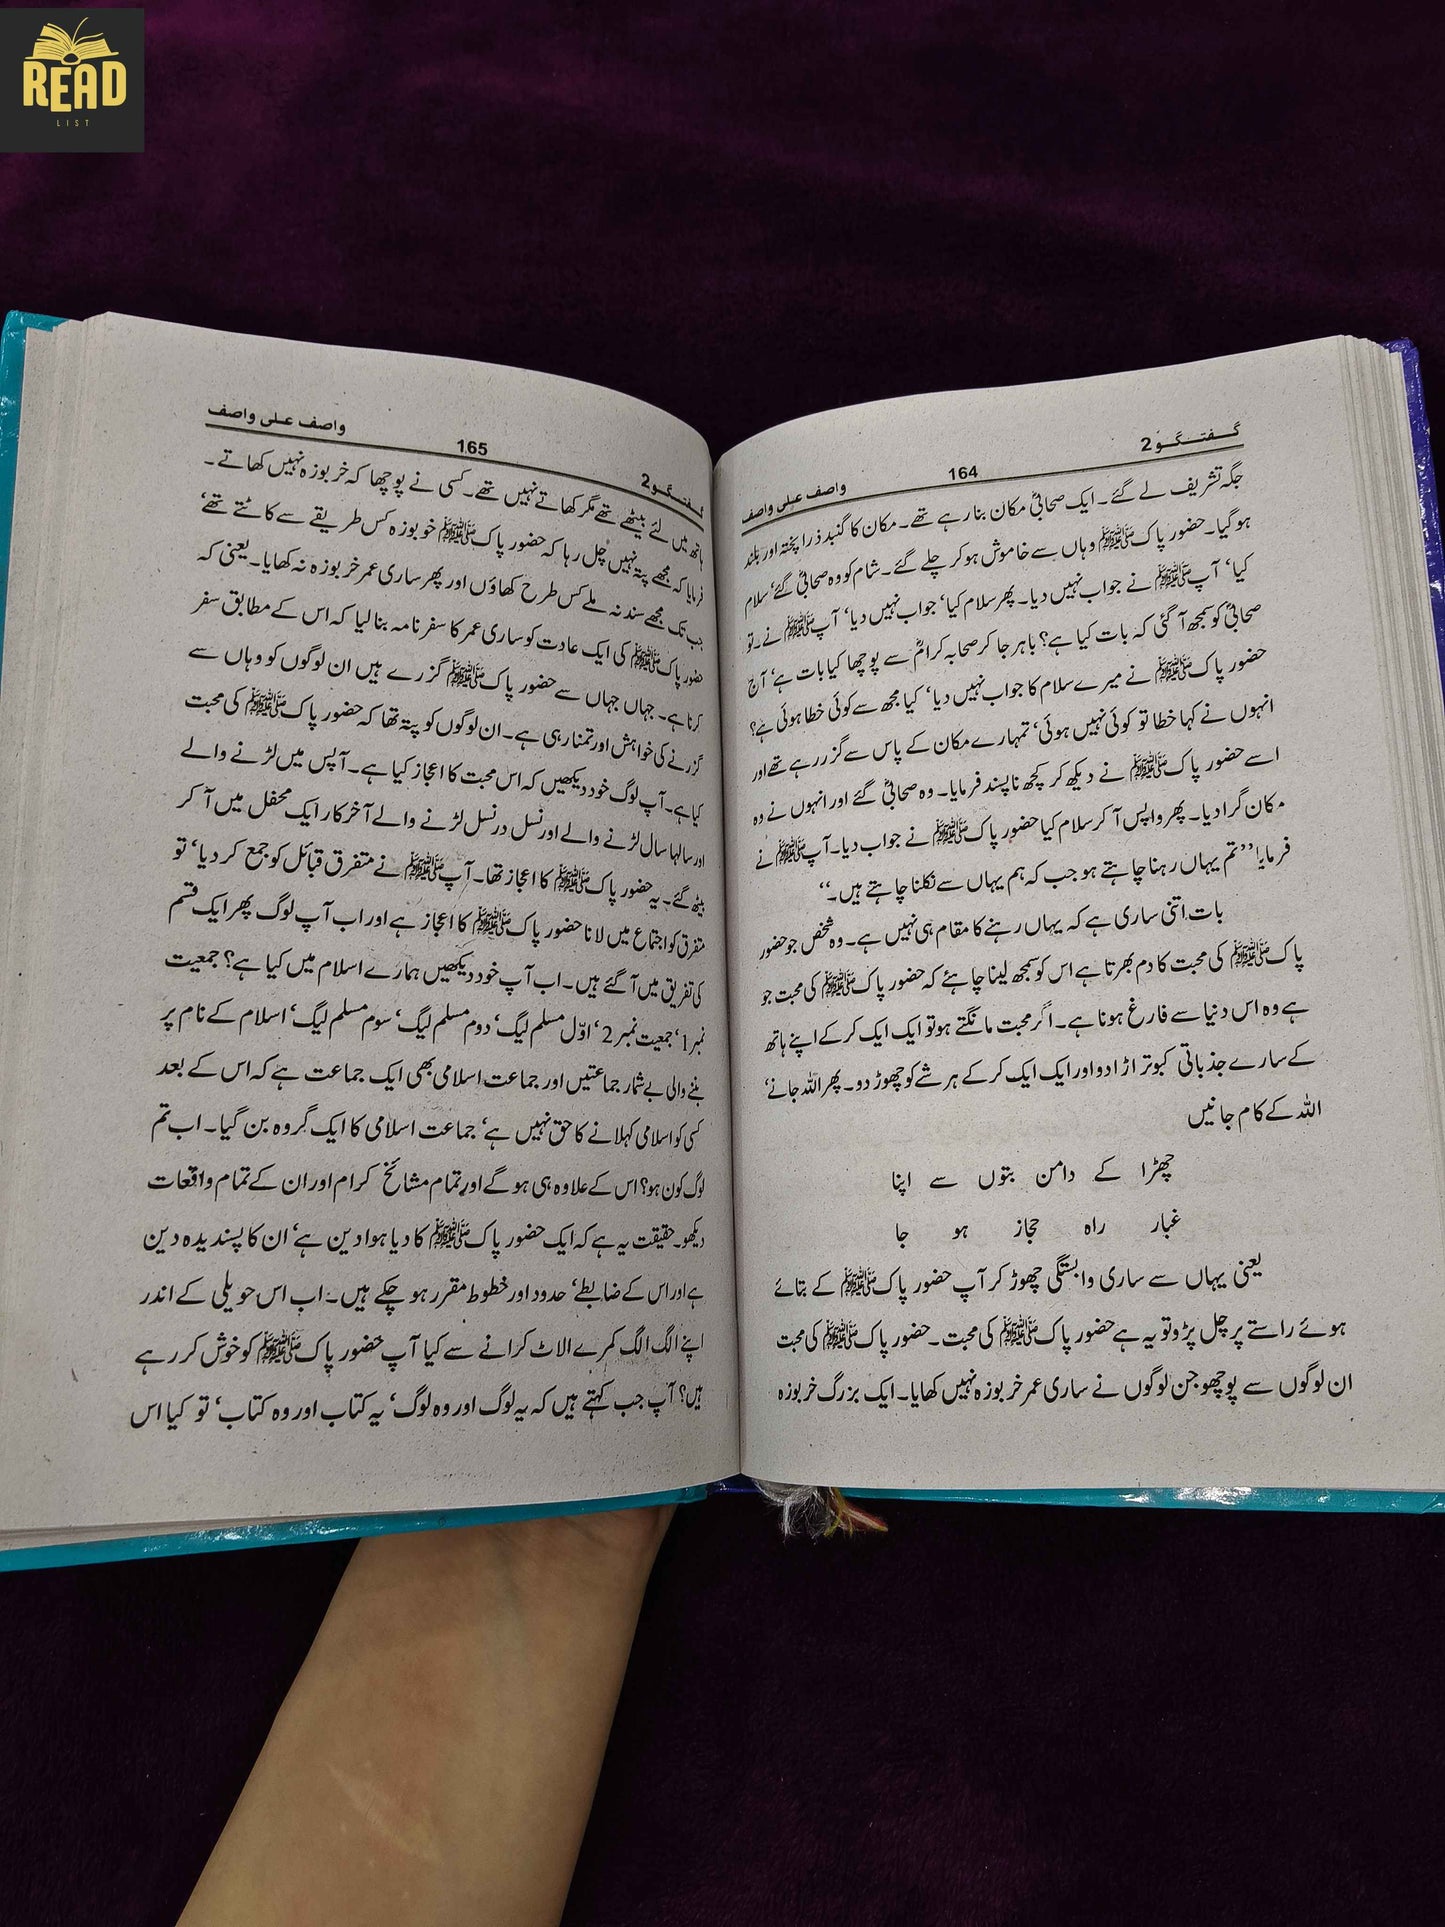 READ
LIST
گفتگو 2
164
واصف علی واصف
جگہ تشریف لے گئے۔ ایک صحابیؓ مکان بنا رہے تھے۔ مکان کا گنبد ذرا پختہ اور بلند
ہو گیا۔ حضور پاکﷺ وہاں سے خاموش ہو کر چلے گئے۔ شام کو وہ صحابیؓ گئے‘ سلام
کیا‘ آپﷺ نے جواب نہیں دیا۔ پھر سلام کیا‘ جواب نہیں دیا‘ آپﷺ نے۔ تو
صحابیؓ کو سمجھ آ گئی کہ بات کیا ہے؟ باہر جا کر صحابہ کرامؓ سے پوچھا کیا بات ہے‘ آج
حضور پاکﷺ نے میرے سلام کا جواب نہیں دیا‘ کیا مجھ سے کوئی خطا ہوئی ہے؟
انہوں نے کہا خطا تو کوئی نہیں ہوئی‘ تمہارے مکان کے پاس سے گزر رہے تھے اور
اسے حضور پاکﷺ نے دیکھ کر کچھ ناپسند فرمایا۔ وہ صحابیؓ گئے اور انہوں نے وہ
مکان گرا دیا۔ پھر واپس آ کر سلام کیا حضور پاکﷺ نے جواب دیا۔ آپﷺ نے
فرمایا ’’تم یہاں رہنا چاہتے ہو جب کہ ہم یہاں سے نکلنا چاہتے ہیں۔‘‘
بات اتنی ساری ہے کہ یہاں رہنے کا مقام ہی نہیں ہے۔ وہ شخص جو حضور
پاکﷺ کی محبت کا دم بھرتا ہے اس کو سمجھ لینا چاہئے کہ حضور پاکﷺ کی محبت جو
ہے وہ اس دنیا سے فارغ ہونا ہے۔ اگر محبت مانگتے ہو تو ایک ایک کر کے اپنے ہاتھ
کے سارے جذباتی کبوتر اڑا دو اور ایک ایک کر کے ہر شے کو چھوڑ دو۔ پھر اللہ جانے‘
اللہ کے کام جانیں
چھڑا کے دامن بتوں سے اپنا
غبار راہ حجاز ہو جا
یعنی یہاں سے ساری وابستگی چھوڑ کر آپ حضور پاکﷺ کے بتائے
ہوئے راستے پر چل پڑو تو یہ ہے حضور پاکﷺ کی محبت۔ حضور پاکﷺ کی محبت
ان لوگوں سے پوچھو جن لوگوں نے ساری عمر خربوزہ نہیں کھایا۔ ایک بزرگ خربوزہ
گفتگو 2
165
واصف علی واصف
ہاتھ میں لئے بیٹھے تھے مگر کھاتے نہیں تھے۔ کسی نے پوچھا کہ خربوزہ نہیں کھاتے۔
فرمایا کہ مجھے پتہ نہیں چل رہا کہ حضور پاکﷺ خربوزہ کس طریقے سے کاٹتے تھے‘
جب تک مجھے سند نہ ملے کس طرح کھاؤں اور پھر ساری عمر خربوزہ نہ کھایا۔ یعنی کہ
حضور پاکﷺ کی ایک عادت کو ساری عمر کا سفر نامہ بنا لیا کہ اس کے مطابق سفر
کرنا ہے۔ جہاں جہاں سے حضور پاکﷺ گزرے ہیں ان لوگوں کو وہاں سے
گزرنے کی خواہش اور تمنا رہی ہے۔ ان لوگوں کو پتہ تھا کہ حضور پاکﷺ کی محبت
کیا ہے۔ آپ لوگ خود دیکھیں کہ اس محبت کا اعجاز کیا ہے۔ آپس میں لڑنے والے
اور سالہا سال لڑنے والے اور نسل در نسل لڑنے والے آخر کار ایک محفل میں آ کر
بیٹھ گئے۔ یہ حضور پاکﷺ کا اعجاز تھا۔ آپﷺ نے متفرق قبائل کو جمع کر دیا‘ تو
متفرق کو اجتماع میں لانا حضور پاکﷺ کا اعجاز ہے اور اب آپ لوگ پھر ایک قسم
کی تفریق میں آ گئے ہیں۔ اب آپ خود دیکھیں ہمارے اسلام میں کیا ہے؟ جمعیت
نمبر 1‘ جمعیت نمبر 2‘ اوّل مسلم لیگ‘ دوم مسلم لیگ‘ سوم مسلم لیگ‘ اسلام کے نام پر
بننے والی بے شمار جماعتیں اور جماعت اسلامی بھی ایک جماعت ہے کہ اس کے بعد
کسی کو اسلامی کہلانے کا حق نہیں ہے‘ جماعت اسلامی کا ایک گروہ بن گیا۔ اب تم
لوگ کون ہو؟ اس کے علاوہ ہی ہو گے اور تمام مشائخ کرام اور ان کے تمام واقعات
دیکھو۔ حقیقت یہ ہے کہ ایک حضور پاکﷺ کا دیا ہوا دین ہے‘ ان کا پسندیدہ دین
ہے اور اس کے ضابطے‘ حدود اور خطوط مقرر ہو چکے ہیں۔ اب اس حویلی کے اندر
اپنے الگ الگ کمرے الاٹ کرانے سے کیا آپ حضور پاکﷺ کو خوش کر رہے
ہیں؟ آپ جب کہتے ہیں کہ یہ لوگ اور وہ لوگ‘ یہ کتاب اور وہ کتاب‘ تو کیا اس